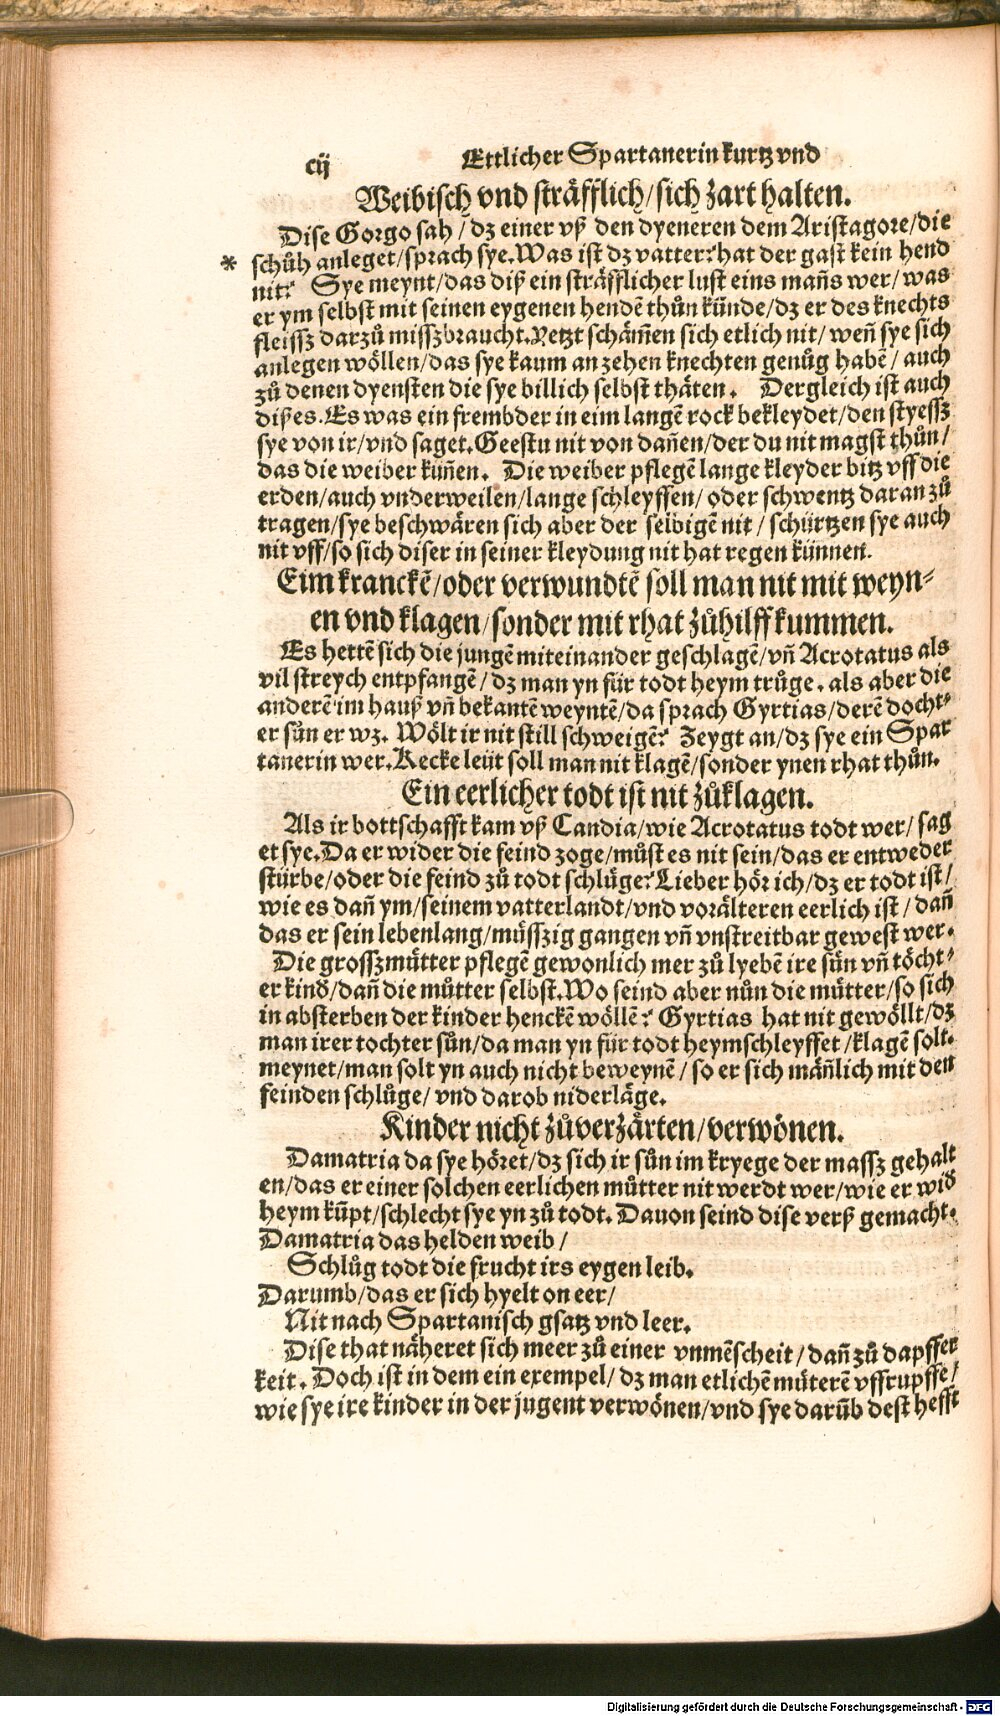 cij
Ettlicher Spartanerin kurtz vnd
Weibisch vnd sträfflich/sich zart halten.
Dise Gorgo sah/dz einer vß den dyeneren dem Aristagore/die
* schůh anleget/sprach sye. Was ist dz vatter? hat der gast kein hend
nit? Sye meynt/das diß ein sträfflicher lust eins mañs wer/was
er ym selbst mit seinen eygenen hendē thůn künde/dz er des knechts
fleissz darzů misszbraucht. Yetzt schäm̄en sich etlich nit/weñ sye sich
anlegen wöllen/das sye kaum an zehen knechten genůg habē/auch
zů denen dyensten die sye billich selbst thäten. Dergleich ist auch
dißes. Es was ein frembder in eim langē rock bekleydet/den styessz
sye von ir/vnd saget. Geestu nit von dañen/der du nit magst thůn/
das die weiber küñen. Die weiber pflegē lange kleyder bitz vff die
erden/auch vnderweilen/lange schleyffen/oder schwentz daran zů
tragen/sye beschwären sich aber der selbigē nit/schürtzen sye auch
nit vff/so sich diser in seiner kleydung nit hat regen künnen.
Eim kranckē/oder verwundtē soll man nit mit weyn⸗
en vnd klagen/sonder mit rhat zůhilff kummen.
Es hettē sich die jungē miteinander geschlagē/vñ Acrotatus als
vil streych entpfangē/dz man yn für todt heym trůge. als aber die
anderē im hauß vñ bekantē weyntē/da sprach Gyrtias/derē docht⸗
er sůn er wz. Wölt ir nit still schweigē? Zeygt an/dz sye ein Spar
tanerin wer. Kecke leüt soll man nit klagē/sonder ynen rhat thůn.
Ein eerlicher todt ist nit zůklagen.
Als ir bottschafft kam vß Candia/wie Acrotatus todt wer/sag
et sye. Da er wider die feind zoge/můst es nit sein/das er entweder
stürbe/oder die feind zů todt schlůge? Lieber hör ich/dz er todt ist/
wie es dañ ym/seinem vatterlandt/vnd vorälteren eerlich ist/dañ
das er sein lebenlang/müsszig gangen vñ vnstreitbar gewest wer.
Die grosszmütter pflegē gewonlich mer zů lyebē ire sün vñ töcht⸗
er kind/dañ die můtter selbst. Wo seind aber nůn die mütter/so sich
in absterben der kinder henckē wöllē? Gyrtias hat nit gewöllt/dz
man irer tochter sůn/da man yn für todt heymschleyffet/klagē solt.
meynet/man solt yn auch nicht beweynē/so er sich mäñlich mit den
feinden schlůge/vnd darob niderläge.
Kinder nicht zůverzärten/verwönen.
Damatria da sye höret/dz sich ir sůn im kryege der massz gehalt
en/das er einer solchen eerlichen můtter nit werdt wer/wie er wid
heym kūpt/schlecht sye yn zů todt. Dauon seind dise verß gemacht.
Damatria das helden weib/
Schlůg todt die frucht irs eygen leib.
Darumb/das er sich hyelt on eer/
Nit nach Spartanisch gsatz vnd leer.
Dise that näheret sich meer zů einer vnmēscheit/dañ zů dapffer
keit. Doch ist in dem ein exempel/dz man etlichē müterē vffrupffe/
wie sye ire kinder in der jugent verwönen/vnd sye darūb dest hefft
Digitalisierung gefördert durch die Deutsche Forschungsgemeinschaft - DFG